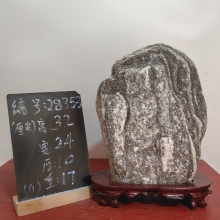 编号:28355
(厘米)高:32
宽24
厚10
(斤)重:17